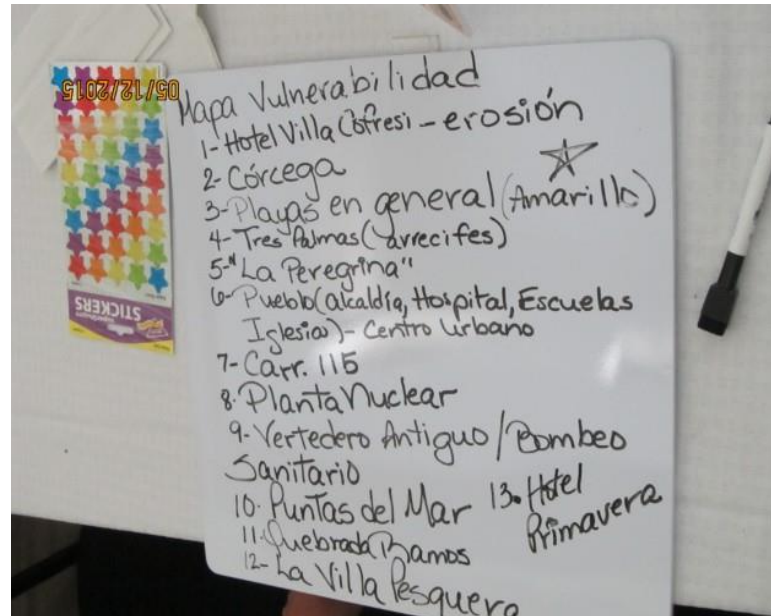 05/12/2015
STICKERS
Mapa Vulnerabilidad
1- Hotel Villa Cofresi - erosión
2- Córcega
3- Playas en general (Amarillo)
4- Tres Palmas (arrecifes)
5- "La Peregrina"
6- Pueblo (alcaldía, Hospital, Escuelas
Iglesias) - Centro Urbano
7- Carr. 115
8. Planta Nuclear
9- Vertedero Antiguo / Bombeo
Sanitario
10. Puntas del Mar
11. Quebrada Ramos
12- La Villa Pesquera
13. Hotel
Primavera